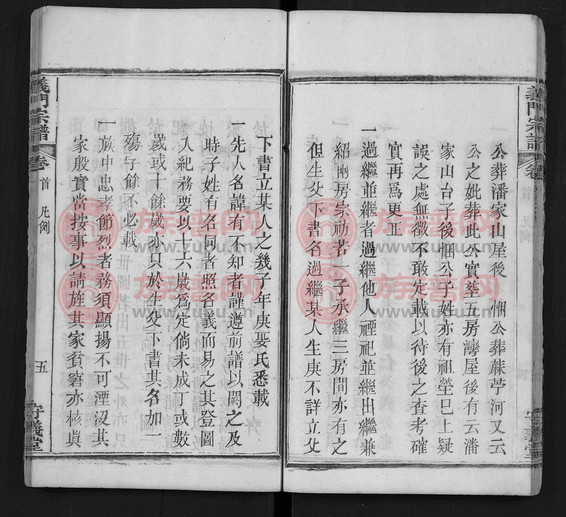 公葬潘家山屋後 悃公葬蔴苧河又云
公之妣葬此公實葬五房灣屋後有云潘
家山台子後悃公子姓亦有祖塋已上疑
誤之處無徵不敢先載以待後之查考確
實再為更正
一過繼並繼者過繼他人禋祀並繼出繼兼
紹兩房宗祧若一子承繼三房間亦有之
但生父下書名過繼某人生庚不詳立父
下書立某人之幾子年庚娶氏悉載
一先人名諱有不知者謹遵前譜以闕之及
時子姓有名同者照名義而易之其登圖
入紀務要以十六歲為定倘未成丁或數
歲或十餘歲亦只於生父下書其名加一
殤字餘不必載
一族中忠孝節烈者務須顯揚不可湮沒其
家殷實當按事以請旌其家貧窘亦核眞
義門宗譜
卷首 凡例
五
守義堂
義門宗譜
族譜网
www.zupu.cn